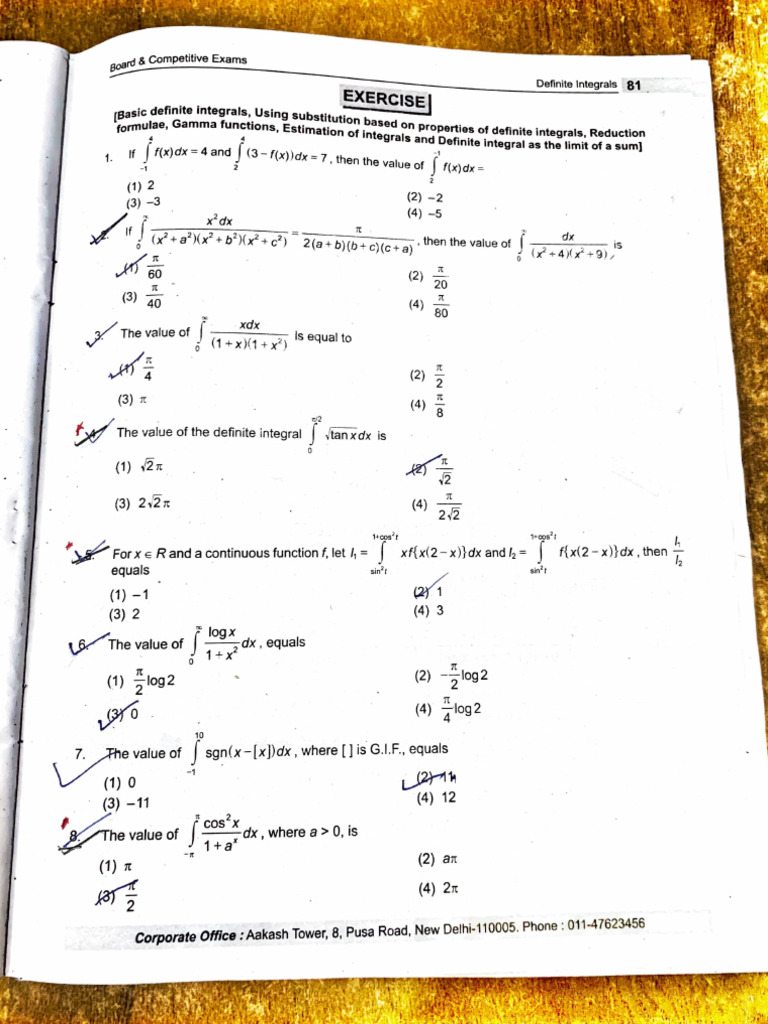 Board & Competitive Exams
Definite Integrals 81
EXERCISE
[Basic definite integrals, Using substitution based on properties of definite integrals, Reduction
formulae, Gamma functions, Estimation of integrals and Definite integral as the limit of a sum]
1. If ∫_{-1}^{4} f(x)dx = 4 and ∫_{2}^{4} (3 – f(x))dx = 7, then the value of ∫_{2}^{-1} f(x)dx =
(1) 2 (2) –2
(3) –3 (4) –5
2. If ∫_{0}^{∞} x²dx / (x² + a²)(x² + b²)(x² + c²) = π / 2(a + b)(b + c)(c + a), then the value of ∫_{0}^{∞} dx / (x² + 4)(x² + 9), is
(1) π/60 (2) π/20
(3) π/40 (4) π/80
3. The value of ∫_{0}^{∞} xdx / (1 + x)(1 + x²) is equal to
(1) π/4 (2) π/2
(3) π (4) π/8
4. The value of the definite integral ∫_{0}^{π/2} √tan x dx is
(1) √2π (2) π/√2
(3) 2√2π (4) π/2√2
5. For x ∈ R and a continuous function f, let I₁ = ∫_{sin²t}^{1+cos²t} xf{x(2 – x)}dx and I₂ = ∫_{sin²t}^{1+cos²t} f{x(2 – x)}dx, then I₁/I₂
equals
(1) –1 (2) 1
(3) 2 (4) 3
6. The value of ∫_{0}^{∞} log x / 1 + x² dx, equals
(1) π/2 log2 (2) –π/2 log2
(3) 0 (4) π/4 log2
7. The value of ∫_{-1}^{10} sgn(x – [x])dx, where [ ] is G.I.F., equals
(1) 0 (2) 11
(3) –11 (4) 12
8. The value of ∫_{-π}^{π} cos²x / 1 + aˣ dx, where a > 0, is
(1) π (2) aπ
(3) π/2 (4) 2π
Corporate Office : Aakash Tower, 8, Pusa Road, New Delhi-110005. Phone : 011-47623456